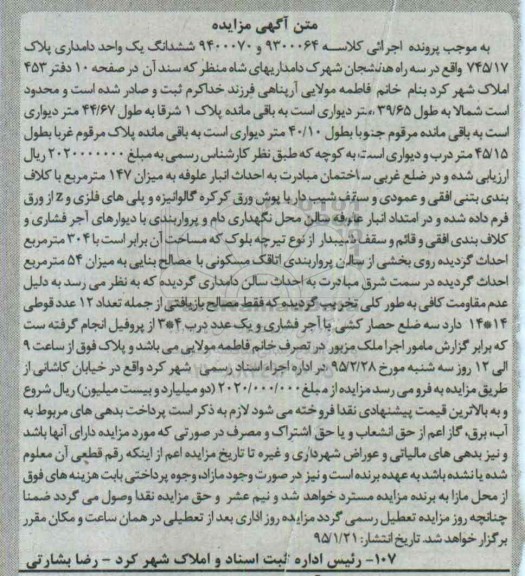 متن آگهی مزایده
به موجب پرونده اجرائی کلاسه ۹۳۰۰۰۶۴ و ۹۴۰۰۰۷۰ ششدانگ یک واحد دامداری پلاک
۷۴۵/۱۷ واقع در سه راه هفشجان شهرک دامداریهای شاه منظر که سند آن در صفحه ۱۰ دفتر ۴۵۳
املاک شهر کرد بنام خانم فاطمه مولایی آرپناهی فرزند خداکرم ثبت و صادر شده است و محدود
است شمالا به طول ۳۹/۶۵ متر دیواری است به باقی مانده پلاک ۱ شرقا به طول ۴۴/۶۷ متر دیواری
است به باقی مانده مرقوم جنوبا بطول ۴۰/۱۰ متر دیواری است به باقی مانده پلاک مرقوم غربا بطول
۴۵/۱۵ متر درب و دیواری است به کوچه که طبق نظر کارشناس رسمی به مبلغ ۲۰۲۰۰۰۰۰۰۰ ریال
ارزیابی شده و در ضلع غربی ساختمان مبادرت به احداث انبار علوفه به میزان ۱۴۷ مترمربع با کلاف
بندی بتنی افقی و عمودی و سقف شیب دار با پوش ورق کرکره گالوانیزه و پلی های فلزی و z از ورق
فرم داده شده و در امتداد انبار علوفه سالن محل نگهداری دام و پرواربندی با دیوارهای آجر فشاری و
کلاف بندی افقی و قائم و سقف شیبدار از نوع تیرچه بلوک که مساحت آن برابر است با ۳۰۴ مترمربع
احداث گردیده روی بخشی از سالن پرواربندی اتاقک مسکونی با مصالح بنایی به میزان ۵۴ مترمربع
احداث گردیده در سمت شرق مبادرت به احداث سالن دامداری گردیده که به نظر می رسد به دلیل
عدم مقاومت کافی به طور کلی تخریب گردیده که فقط مصالح بازیافتی از جمله تعداد ۱۲ عدد قوطی
۱۴*۱۴ دارد سه ضلع حصار کشی با آجر فشاری و یک عدد درب ۴*۳ از پروفیل انجام گرفته ست
که برابر گزارش مامور اجرا ملک مزبور در تصرف خانم فاطمه مولایی می باشد و پلاک فوق از ساعت ۹
الی ۱۲ روز سه شنبه مورخ ۹۵/۲/۲۸ در اداره اجراء اسناد رسمی شهر کرد واقع در خیابان کاشانی از
طریق مزایده به فرو می رسد مزایده از مبلغ ۲/۰۲۰/۰۰۰/۰۰۰ (دو میلیارد و بیست میلیون) ریال شروع
و به بالاترین قیمت پیشنهادی نقدا فروخته می شود لازم به ذکر است پرداخت بدهی های مربوط به
آب، برق، گاز اعم از حق انشعاب و یا حق اشتراک و مصرف در صورتی که مورد مزایده دارای آنها باشد
و نیز بدهی های مالیاتی و عوارض شهرداری و غیره تا تاریخ مزایده اعم از اینکه رقم قطعی آن معلوم
شده یا نشده باشد به عهده برنده است و نیز در صورت وجود مازاد، وجوه پرداختی بابت هزینه های فوق
از محل مازا به برنده مزایده مسترد خواهد شد و نیم عشر و حق مزایده نقدا وصول می گردد ضمنا
چنانچه روز مزایده تعطیل رسمی گردد مزایده روز اداری بعد از تعطیلی در همان ساعت و مکان مقرر
برگزار خواهد شد. تاریخ انتشار: ۹۵/۱/۲۱
۱۰۷- رئیس اداره ثبت اسناد و املاک شهر کرد - رضا بشارتی